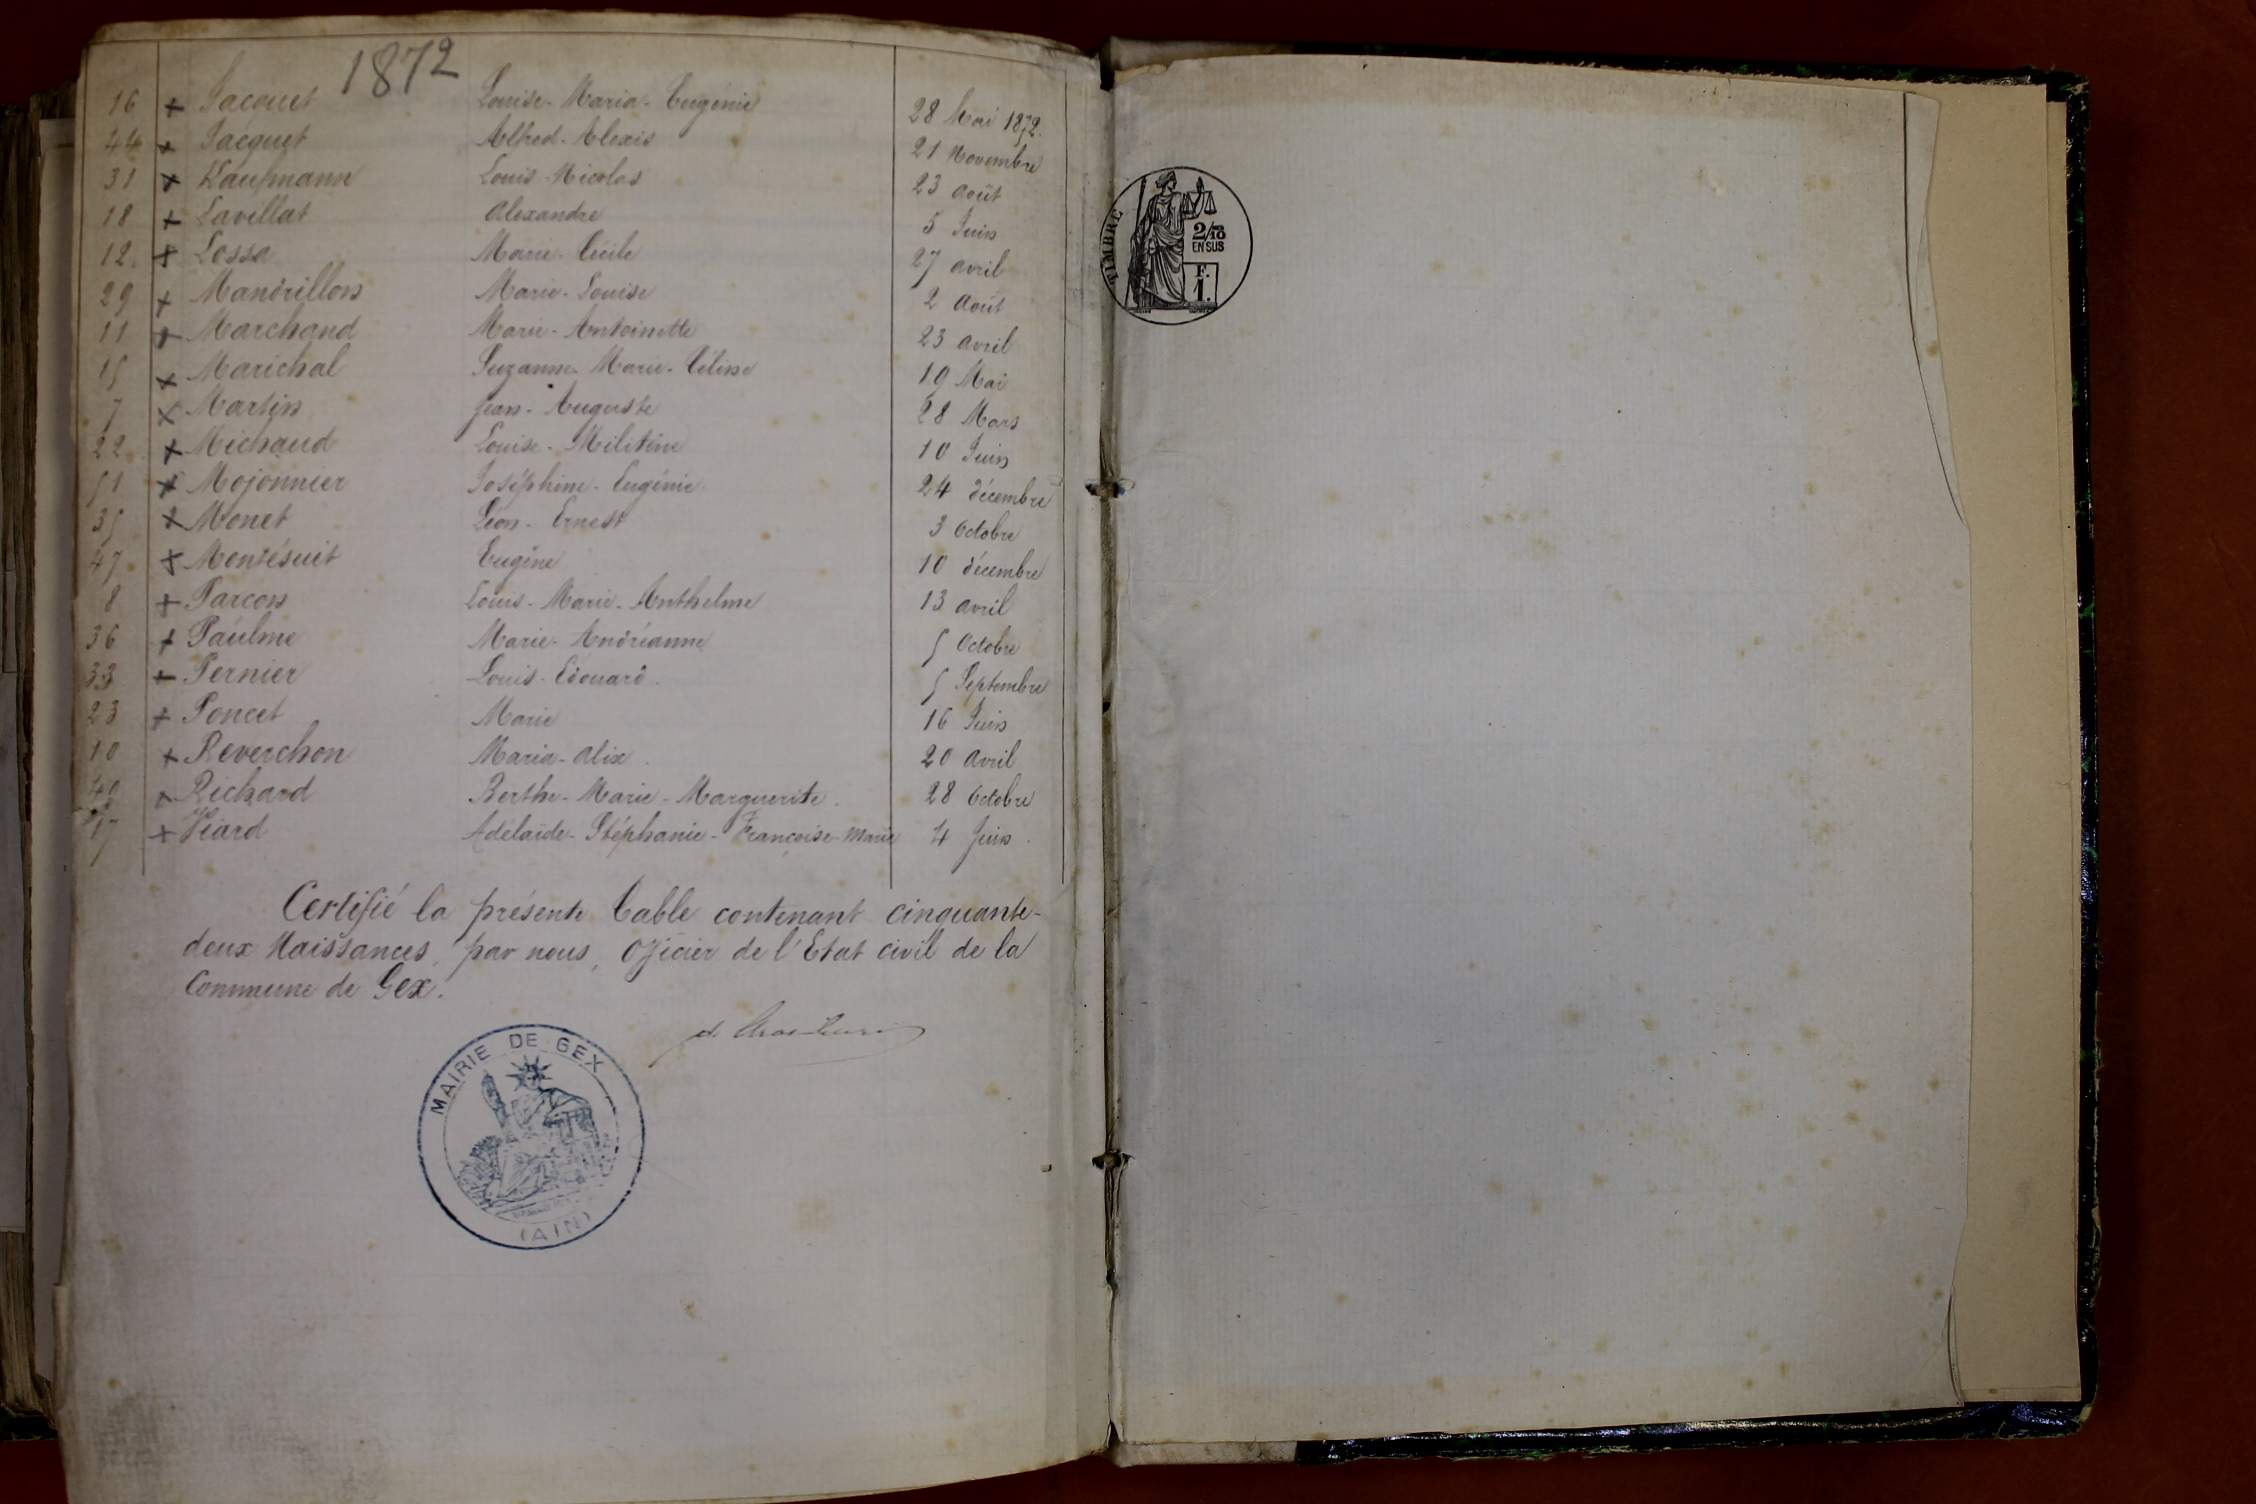 1872
16 + Jacquet Louise-Maria-Eugénie 28 Mai 1872.
44 + Jacquet Alfred-Alexis 21 Novembre
31 + Kaufmann Louis-Nicolas 23 août
18 + Lavillat Alexandre 5 Juin
12. + Lossa Marie-Cécile 27 avril
29 + Mandrillon Marie-Louise 2 Août
11 + Marchand Marie-Antoinette 23 avril
15 + Marichal Suzanne-Marie-Céline 19 Mai
7 + Martin Jean-Auguste 28 Mars
22 + Michaud Louise-Militine 10 Juin
51 + Mojonnier Joséphine-Eugénie 24 décembre
35 + Monet Léon-Ernest 3 Octobre
47 + Montésuit Eugène 10 décembre
8 + Parcon Louis-Marie-Anthelme 13 avril
36 + Paulme Marie-Andréanne 5 Octobre
33 + Pernier Louis-Edouard. 5 Septembre
23 + Poncet Marie 16 Juin
10 + Reverchon Maria-Alix. 20 avril
40 + Richard Berthe-Marie-Marguerite. 28 Octobre
17 + Viard Adélaïde-Stéphanie-Françoise-Marie 4 Juin.
Certifié la présente Table contenant cinquante-
deux Naissances, par nous, Officier de l'Etat civil de la
Commune de Gex.
MAIRIE DE GEX
(AIN)
TIMBRE
2/10
EN SUS
F.
1.